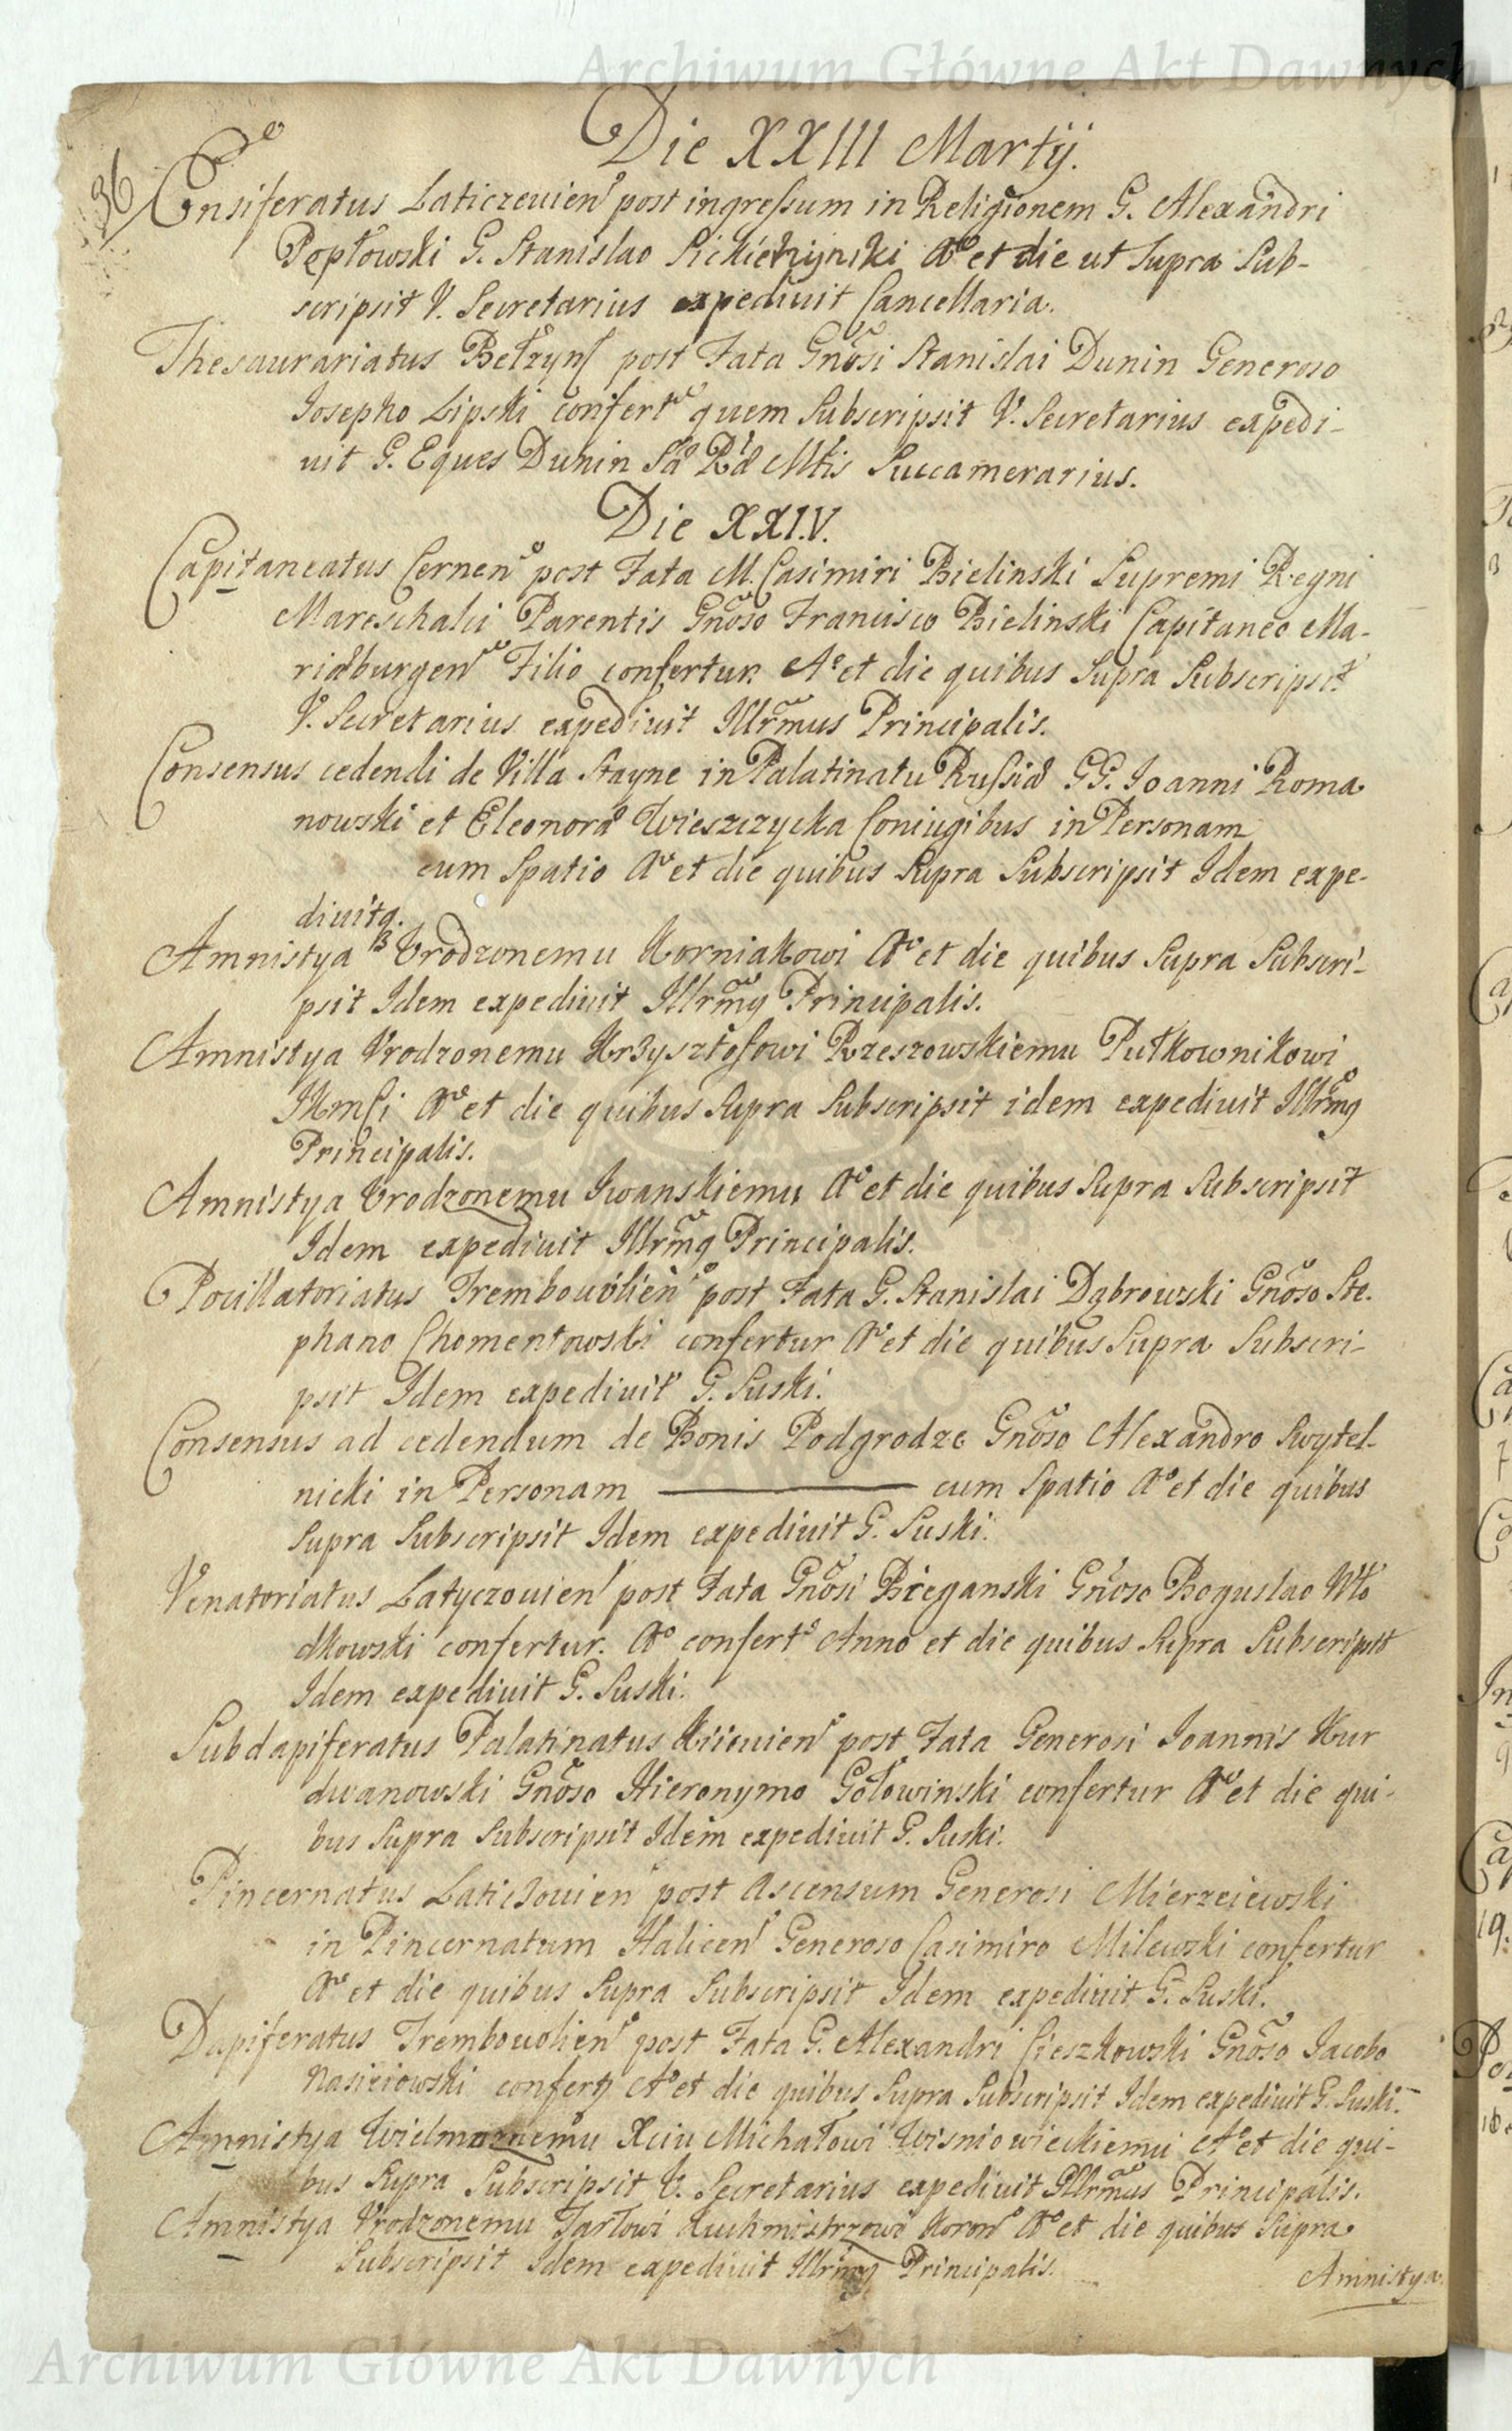 Archiwum Główne Akt Dawnych
36
Die XXIII Martij.
Ensiferatus Laticzeuien post ingressum in Religionem G. Alexandri
Pepłowski G. Stanislao Sickierzynski Ao et die ut supra Sub-
scripsit V. Secretarius expediuit Cancellaria.
Thesaurariatus Bełzyn post Fata Gnosi Stanislai Dunin Generoso
Josepho Lipski confert quem Subscripsit V. Secretarius expedi-
uit G. Eques Dunin Sa Ra Mtis Succamerarius.
Die XXIV.
Capitaneatus Cernen post Fata M. Casimiri Bielinski Supremi Regni
Mareschalci Parentis Gnoso Francisco Bielinski Capitaneo Ma-
riæburgen Filio confertur Ao et die quibus Supra Subscripsit
V. Secretarius expediuit Illrmus Principalis.
Consensus cedendi de Villa Stayne in Palatinatu Russiæ GG. Joanni Roma
nowski et Eleonoræ Wieszczycka Coniugibus in Personam
cum Spatio Ao et die quibus Supra Subscripsit Idem expe-
diuit
Amnistya Vrodzonemu Korniakowi Ao et die quibus Supra Subscri-
psit Idem expediuit Illrmq Principalis.
Amnistya Vrodzonemu Krzysztofowi Rzeszowskiemu Pułkownikowi
JKmsci Ao et die quibus Supra Subscripsit idem expediuit Illrmq
Principalis.
Amnistya Vrodzonemu Iwanskiemu Ao et die quibus Supra Subscripsit
Idem expediuit Illrmq Principalis.
Pocillatoriatus Trembouolien post Fata G. Stanislai Dąbrowski Gnoso Ste-
phano Chomentowski confertur Ao et die quibus Supra Subscri-
psit Idem expediuit G. Suski.
Consensus ad cedendum de Bonis Podgrodze Gnoso Alexandro Swytel-
nicki in Personam ——— cum Spatio Ao et die quibus
Supra Subscripsit Idem expediuit G. Suski.
Venatoriatus Latyczouien post Fata Gnosi Bieganski Gnoso Boguslao Wło
dkowski confertur. Ao confert Anno et die quibus Supra Subscripsit
Idem expediuit G. Suski.
Subdapiferatus Palatinatus Kiiouien post Fata Generosi Joannis Kur
dwanowski Gnoso Hieronymo Gołowinski confertur Ao et die qui-
bus Supra Subscripsit Idem expediuit G. Suski.
Pincernatus Laticzouien post Ascensum Generosi Mierzeiewski
in Pincernatum Halicen Generoso Casimiro Milewski confertur
Ao et die quibus Supra Subscripsit Idem expediuit G. Suski.
Dapiferatus Trembouolien post Fata G. Alexandri Cieszkowski Gnoso Jacobo
Nasiciowski confert Ao et die quibus Supra Subscripsit Idem expediuit G. Suski.
Amnistya Wielmoznemu Xciu Michałowi Wisniowieckiemu Ao et die qui-
bus Supra Subscripsit V. Secretarius expediuit Illrmus Principalis.
Amnistya Vrodzonemu Tarłowi Kuchmistrzowi Koron Ao et die quibus Supra
Subscripsit Idem expediuit Illrmq Principalis.
Amnistya
Archiwum Główne Akt Dawnych